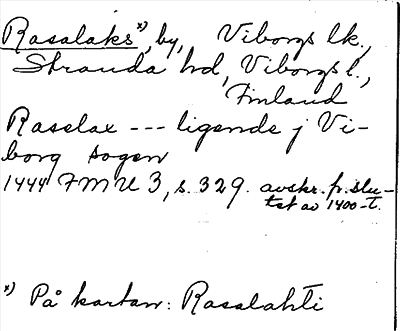 Rasalaks*), by, Viborgs lk.,
Stranda hd, Viborgs l.,
Finland
Raselax --- ligende j Vi-
borg sogen
1444 FMU 3, s. 329. avskr. fr. slu-
tet av 1400-t.
*) På kartan: Rasalahti